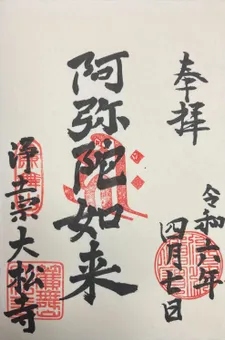 奉拝
令和六年
四月七日
阿弥陀如来
浄土宗大松寺